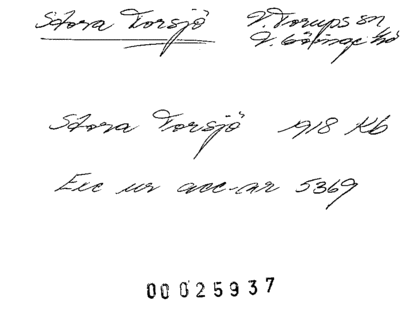 Stora Torsjö V. Torups sn
V. Göinge hd
Stora Torsjö 1918 Kb
Exc ur acc-nr 5369
00025937